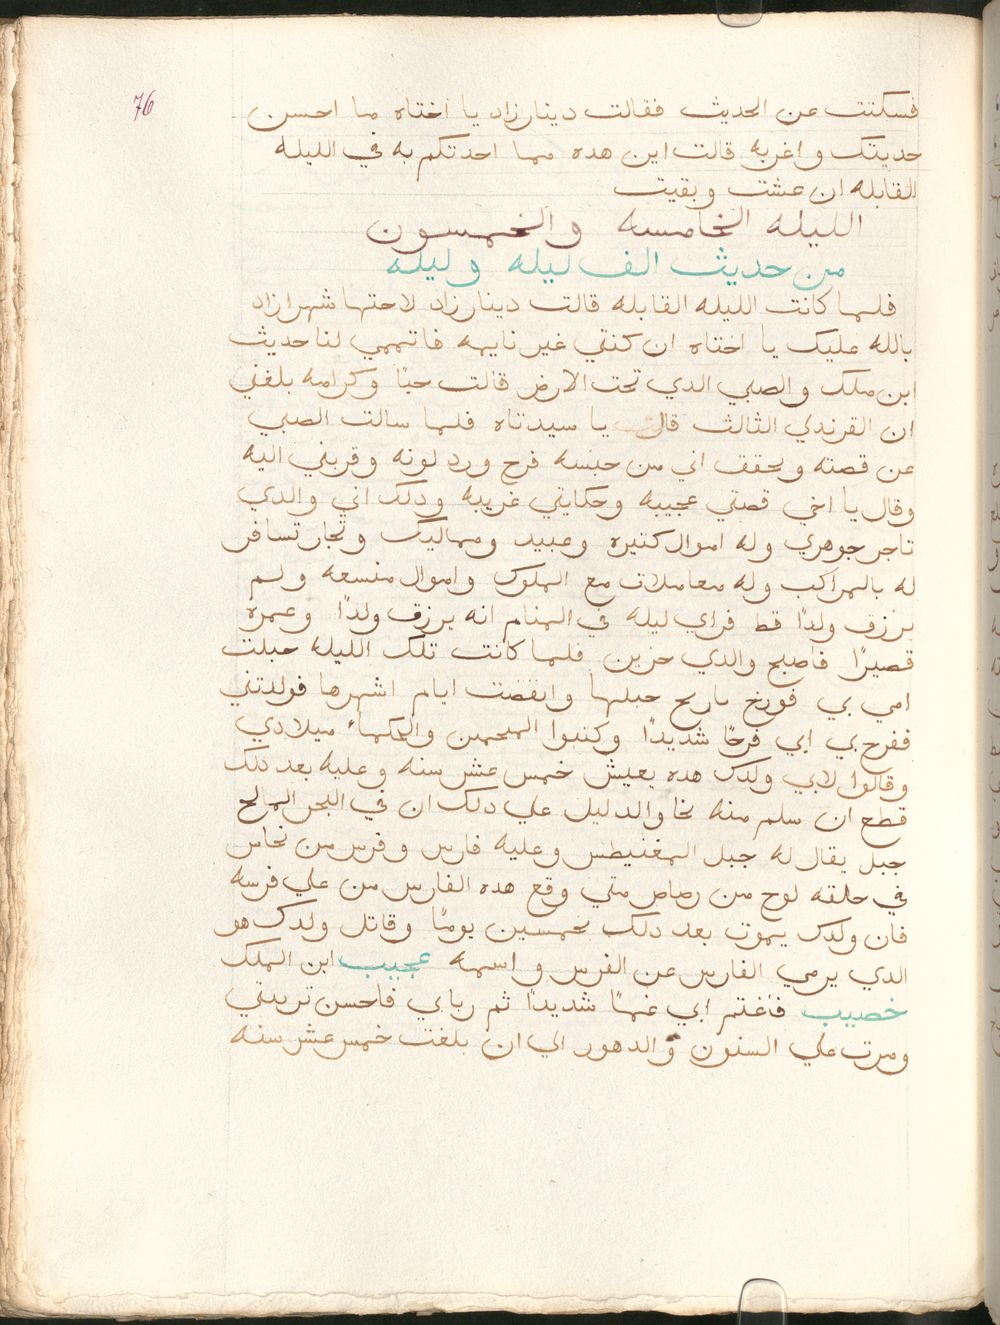 76
فسكتت عن الحديث فقالت دينارزاد يا اختاه ما احسن
حديتك واغربه قالت اين هده مما احدتكم به في الليله
القابله ان عشت وبقيت
الليله الخامسه والخمسون
من حديث الف ليله وليله
فلما كانت الليله القابله قالت دينارزاد لاختها شهرازاد
بالله عليك يا اختاه ان كنتي غير نايمه فاتممي لنا حديث
ابن ملك والصبي الدي تحت الارض قالت حبًا وكرامه بلغني
ان القرندي الثالث قال يا سيدتاه فلما سالت الصبي
عن قصته وتحقق اني من جنسه فرح ورد لونه وقربني اليه
وقال يا اخي قصتي عجيبه وحكايتي غريبه ودلك اني والدي
تاجر جوهري وله اموال كتيره وعبيد ومماليك وتجار تسافر
له بالمراكب وله معاملات مع الملوك واموال متسعه ولم
يرزق ولدًا قط فراي ليله في المنام انه يرزق ولدًا وعمره
قصيرًا فاصبح والدي حزين فلما كانت تلك الليله حبلت
امي بي فورخ تاريخ حبلها وانقضت ايام اشهرها فولدتني
ففرح بي ابي فرحًا شديدًا وكتبوا المنجمين والحكماء ميلادي
وقالوا لابي ولدك هده يعيش خمس عشر سنه وعليه بعد دلك
قطع ان سلم منه نجا والدليل علي دلك ان في البحر المالح
جبل يقال له جبل المغنيطس وعليه فارس وفرس من نحاس
في حلقه لوح من رصاص متي وقع هده الفارس من علي فرسه
فان ولدك يموت بعد دلك بخمسين يومًا وقاتل ولدك هو
الدي يرمي الفارس عن الفرس واسمه عجيب ابن الملك
خصيب فاغتم ابي غمًا شديدًا ثم رباي فاحسن تربيتي
ومرت علي السنون والدهور الي ان بلغت خمس عشر سنه